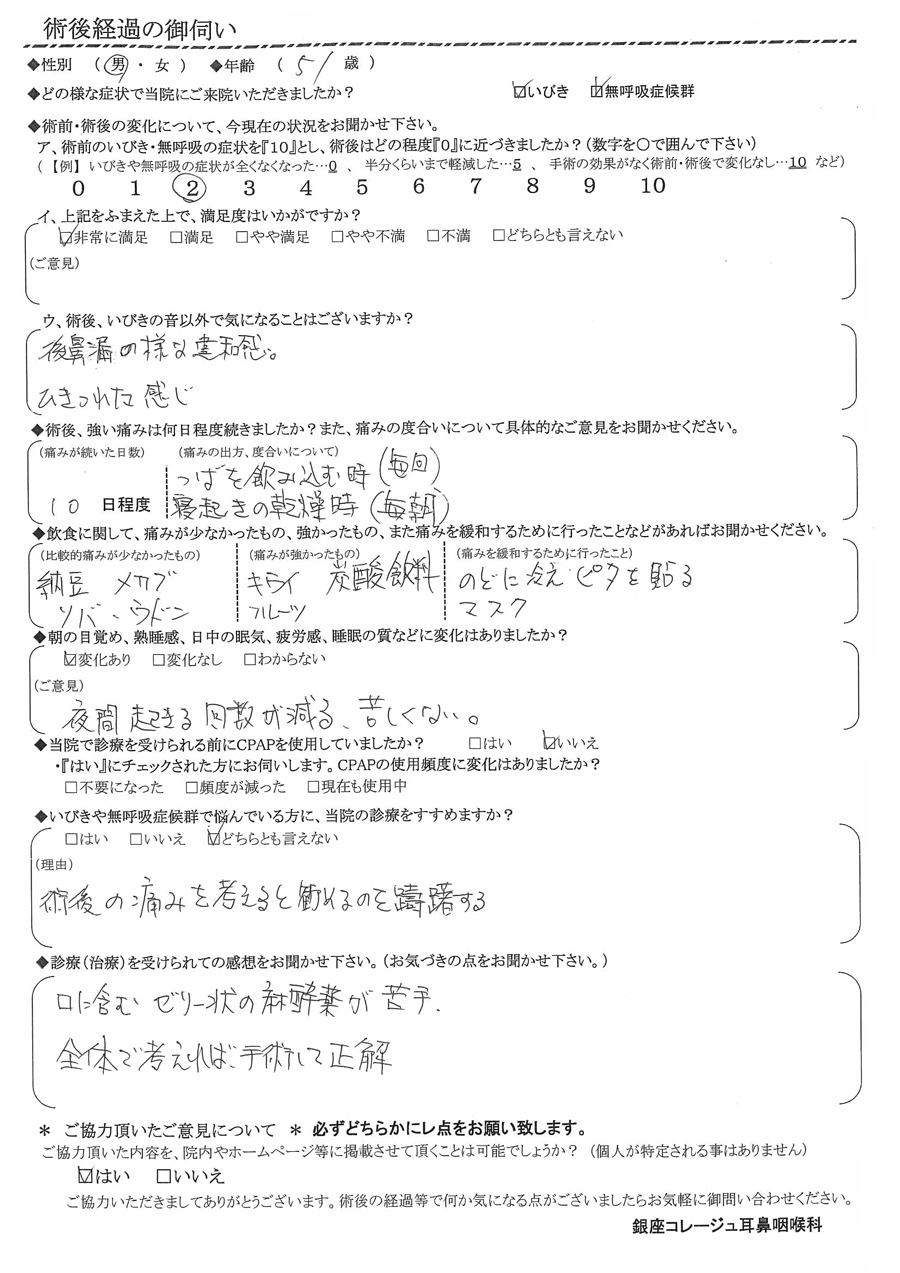 術後経過の御伺い
◆性別 （ 男 ・ 女 ） ◆年齢 （ 51 歳 ）
◆どの様な症状で当院にご来院いただきましたか？ ☑いびき ☑無呼吸症候群
◆術前・術後の変化について、今現在の状況をお聞かせ下さい。
ア、術前のいびき・無呼吸の症状を『10』とし、術後はどの程度『0』に近づきましたか？（数字を〇で囲んで下さい）
（【例】 いびきや無呼吸の症状が全くなくなった…0 、 半分くらいまで軽減した…5 、 手術の効果がなく術前・術後で変化なし…10 など）
0 1 2 3 4 5 6 7 8 9 10
イ、上記をふまえた上で、満足度はいかがですか？
☑非常に満足 □満足 □やや満足 □やや不満 □不満 □どちらとも言えない
（ご意見）
ウ、術後、いびきの音以外で気になることはございますか？
後鼻漏の様な違和感。
ひきつれた感じ
◆術後、強い痛みは何日程度続きましたか？また、痛みの度合いについて具体的なご意見をお聞かせください。
（痛みが続いた日数） （痛みの出方、度合いについて）
つばを飲み込む時（毎回）
10 日程度 寝起きの乾燥時（毎朝）
◆飲食に関して、痛みが少なかったもの、強かったもの、また痛みを緩和するために行ったことなどがあればお聞かせください。
（比較的痛みが少なかったもの） （痛みが強かったもの） （痛みを緩和するために行ったこと）
納豆 メカブ キライ 炭酸飲料 のどに冷えピタを貼る
ソバ、ウドン フルーツ マスク
◆朝の目覚め、熟睡感、日中の眠気、疲労感、睡眠の質などに変化はありましたか？
☑変化あり □変化なし □わからない
（ご意見）
夜間起きる回数が減る、苦しくない。
◆当院で診療を受けられる前にCPAPを使用していましたか？ □はい ☑いいえ
・『はい』にチェックされた方にお伺いします。CPAPの使用頻度に変化はありましたか？
□不要になった □頻度が減った □現在も使用中
◆いびきや無呼吸症候群で悩んでいる方に、当院の診療をすすめますか？
□はい □いいえ ☑どちらとも言えない
（理由）
術後の痛みを考えると勧めるのを躊躇する
◆診療（治療）を受けられての感想をお聞かせ下さい。（お気づきの点をお聞かせ下さい。）
口に含むゼリー状の麻酔薬が苦手.
全体で考えれば、手術して正解
＊ ご協力頂いたご意見について ＊ 必ずどちらかにレ点をお願い致します。
ご協力頂いた内容を、院内やホームページ等に掲載させて頂くことは可能でしょうか？ （個人が特定される事はありません）
☑はい □いいえ
ご協力いただきましてありがとうございます。術後の経過等で何か気になる点がございましたらお気軽に御問い合わせください。
銀座コレージュ耳鼻咽喉科